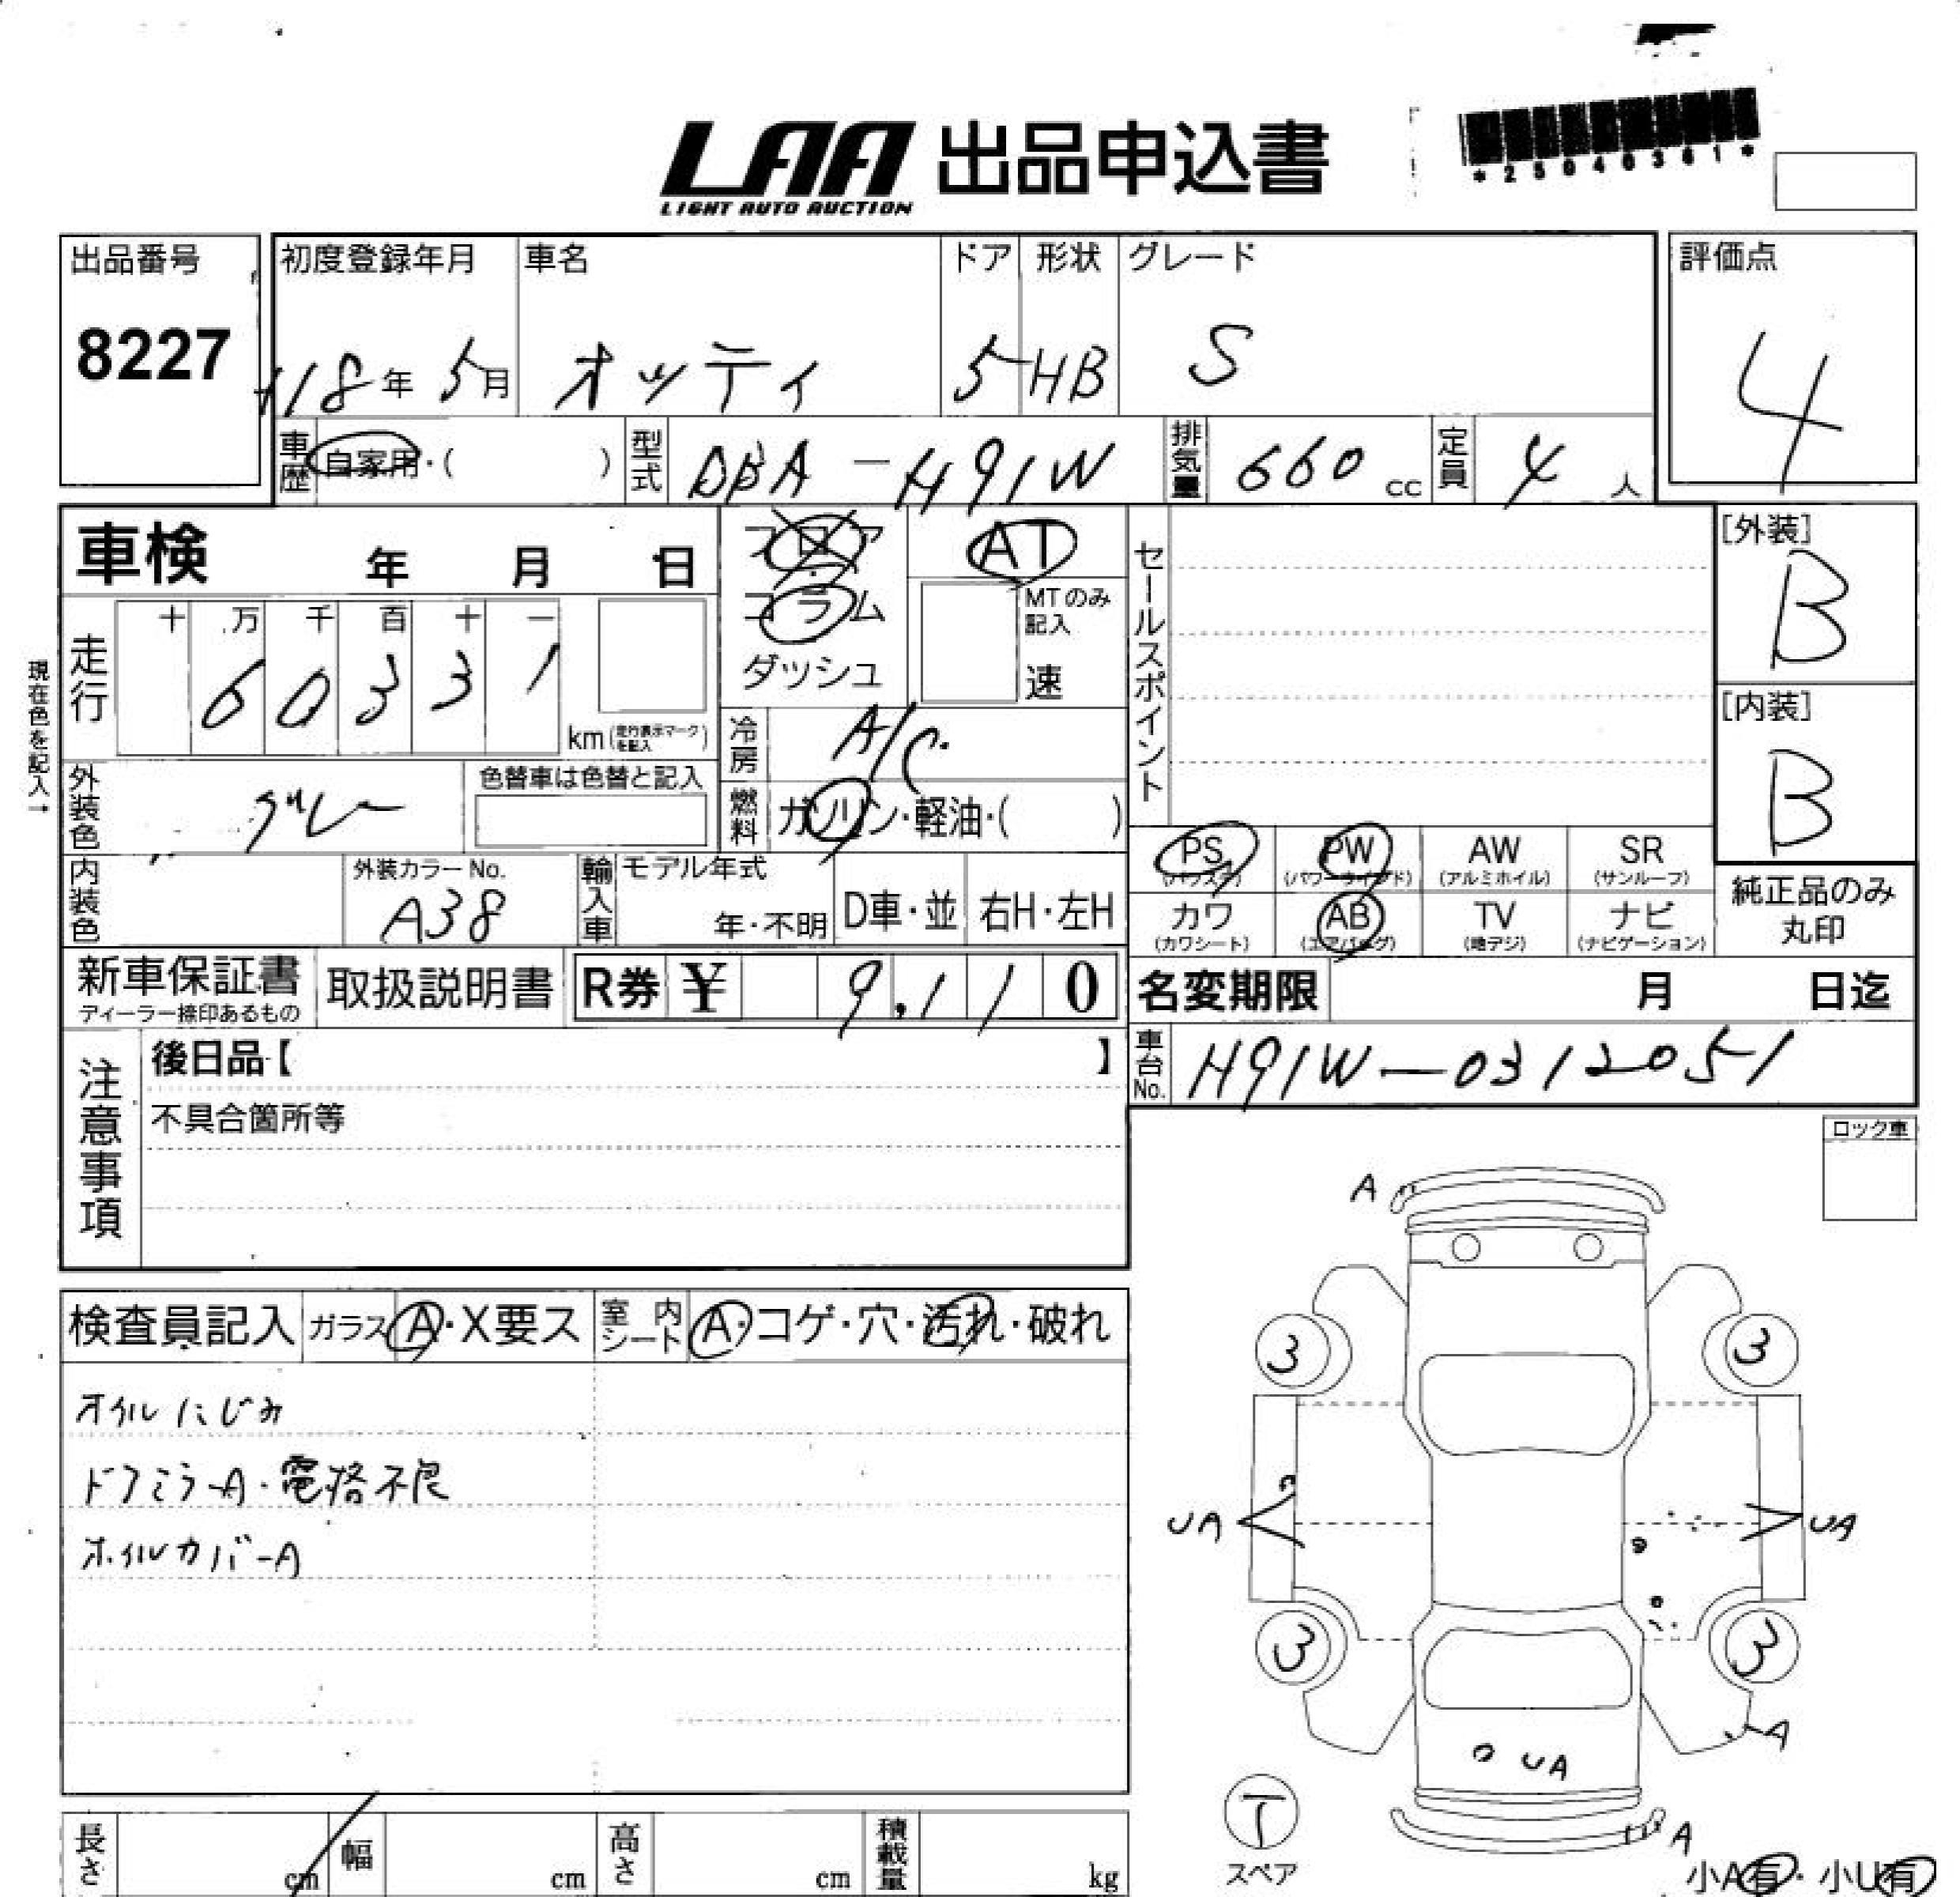 LAA 出品申込書
LIGHT AUTO AUCTION
*25040361*
出品番号 初度登録年月 車名 ドア 形状 グレード 評価点
8227 H18年 5月 オッティ 5 HB S 4
車歴 自家用・( ) 型式 DBA-H91W 排気量 660 cc 定員 4 人
車検 年 月 日 フロア AT セールスポイント [外装]
コラム MTのみ記入 B
走行 十 万 千 百 十 一 ダッシュ 速
6 0 3 3 1 km (走行表示マークを記入) [内装]
現在色を記入→ 冷房 A/C B
外装色 グレー 色替車は色替と記入 燃料 ガソリン・軽油・( )
PS (パワステ) PW (パワーウインド) AW (アルミホイル) SR (サンルーフ)
内装色 外装カラーNo. A38 輸入車 モデル年式 年・不明 D車・並 右H・左H
カワ (カワシート) AB (エアバッグ) TV (地デジ) ナビ (ナビゲーション) 純正品のみ丸印
新車保証書 取扱説明書 R券 ¥ 9,110 名変期限 月 日迄
ディーラー捺印あるもの
注意事項 後日品【 】 車台No. H91W-0312051
不具合箇所等
ロック車
A
検査員記入 ガラス A・X要ス 室内シート A・コゲ・穴・汚れ・破れ
3 3
オイルにじみ
ドアミラーA・電格不良
UA UA
ホイルカバーA
3 3
A
UA
T
スペア
A
長さ cm 幅 cm 高さ cm 積載量 kg
小A有・小U有